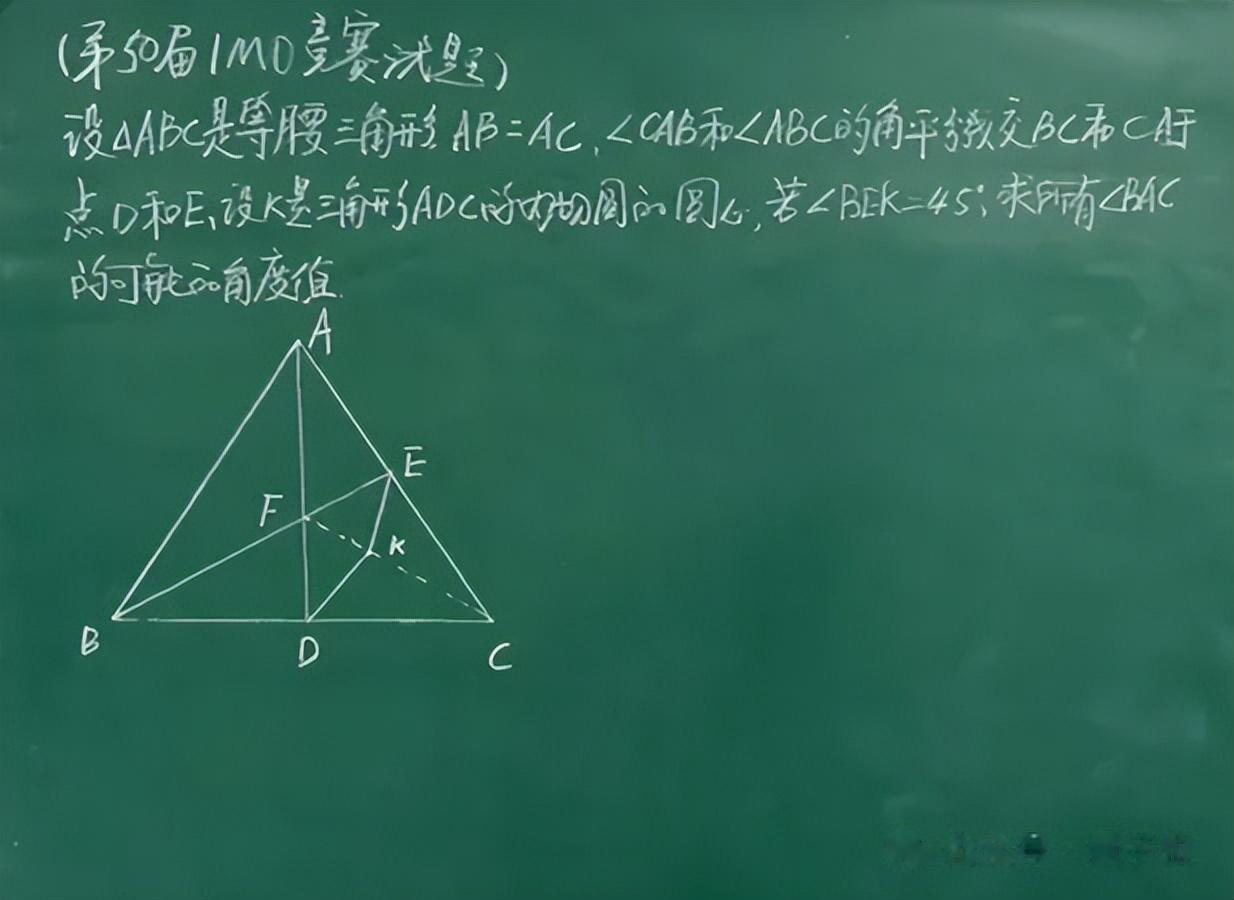 (第50届IMO竞赛试题)
设△ABC是等腰三角形AB=AC,∠CAB和∠ABC的角平分线交BC和CA于
点D和E,设K是三角形ADC的内切圆的圆心,若∠BEK=45°,求所有∠BAC
的可能的角度值.
A
E
F
K
B
D
C